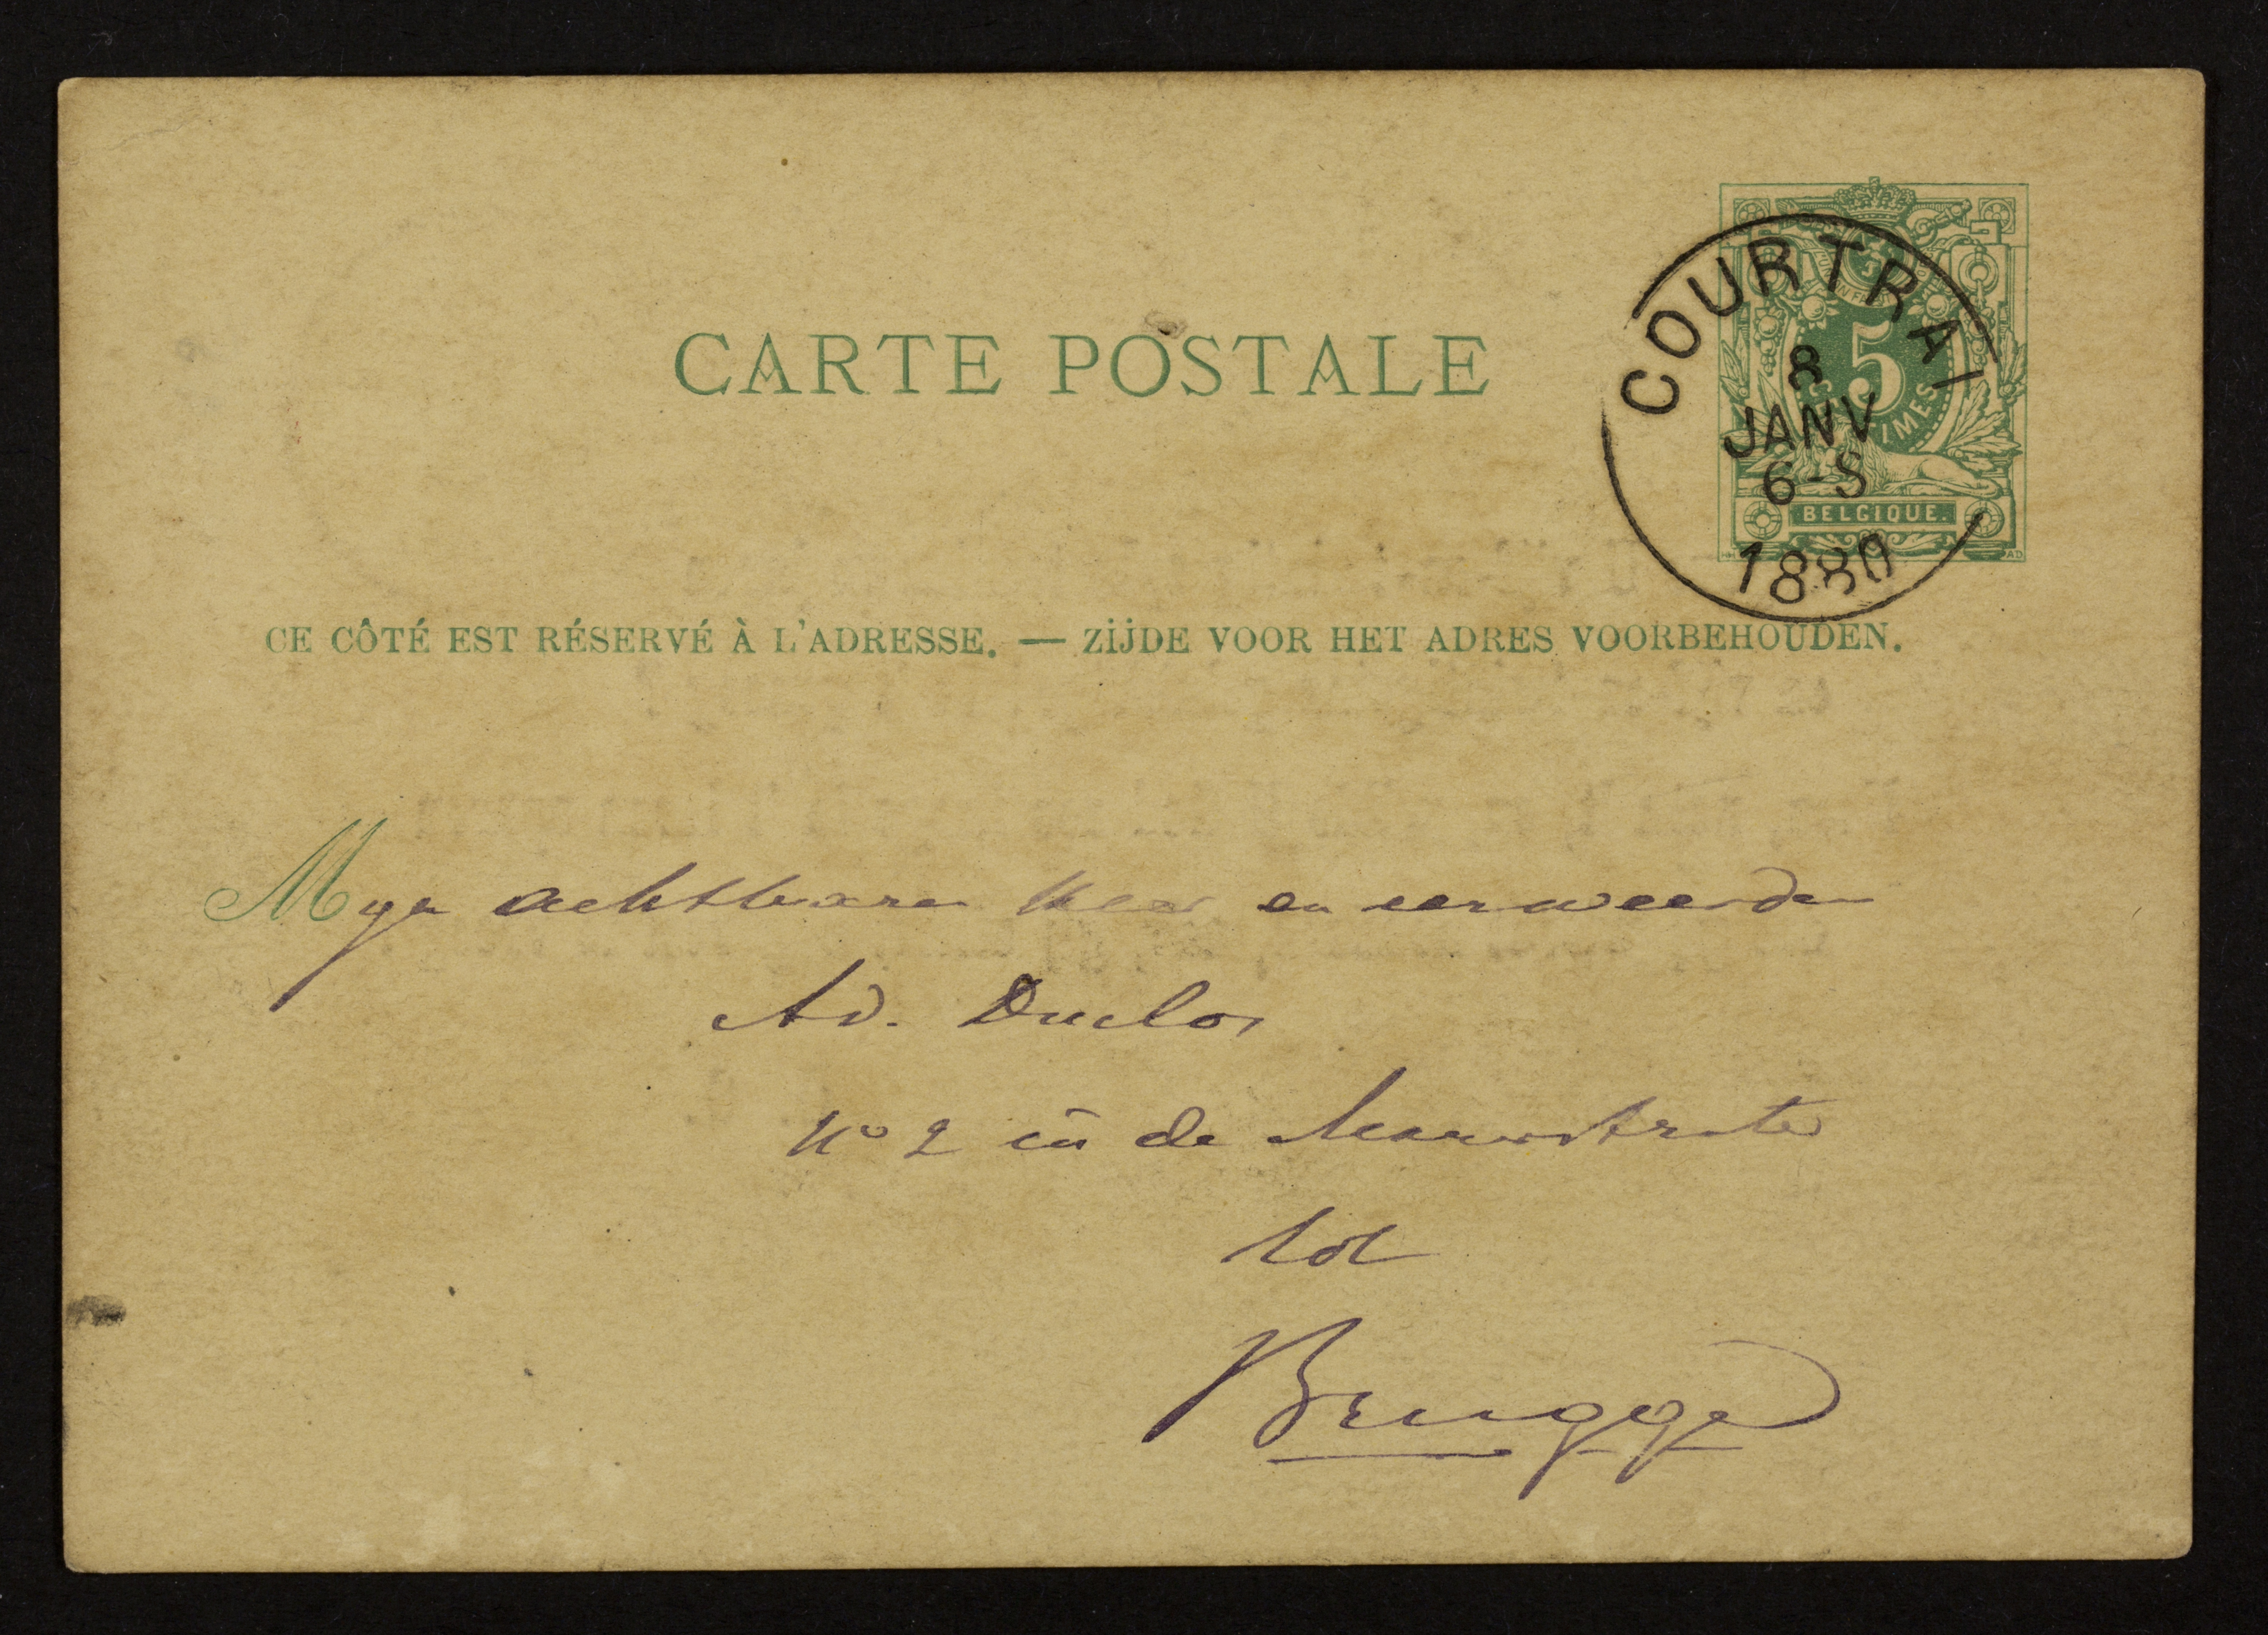 CARTE POSTALE
COURTRAI
8
JANV
6-S
1880
5
CENTIMES
BELGIQUE.
CE CÔTÉ EST RÉSERVÉ À L'ADRESSE. — ZIJDE VOOR HET ADRES VOORBEHOUDEN.
Myn achtbaren Heer en eerweerden
Ad. Duclos
No 2 in de
tot
Brugge